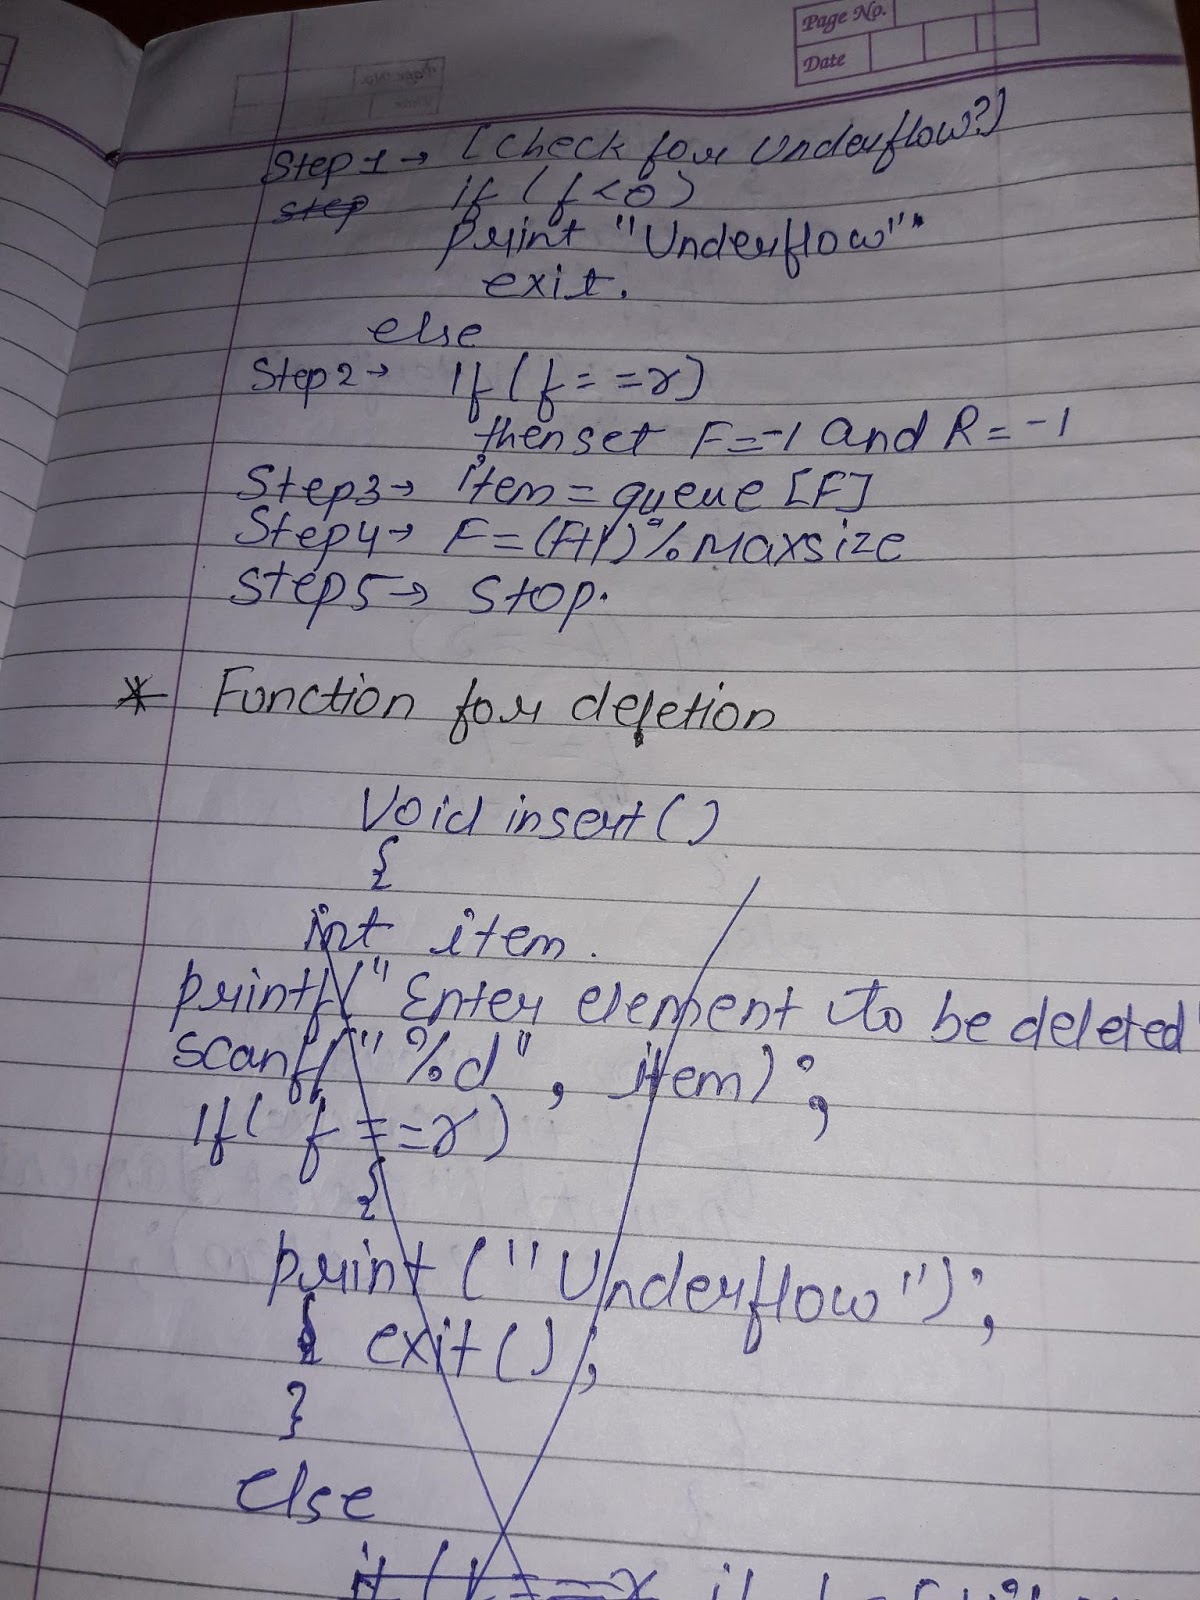 Page No.
Date
Step 1 → [Check for Underflow?]
step if (f<0)
print "Underflow"
exit.
else
Step 2 → If (f = = r)
then set F=-1 and R=-1
Step3 → item = queue [F]
Step4 → F=(F+1)% Maxsize
Step5 → Stop.
* Function for deletion
Void insert()
{
int item.
printf(" Enter element to be deleted"
scanf(" %d" , item);
If( f = =r)
{
print ("Underflow");
{ exit();
}
else